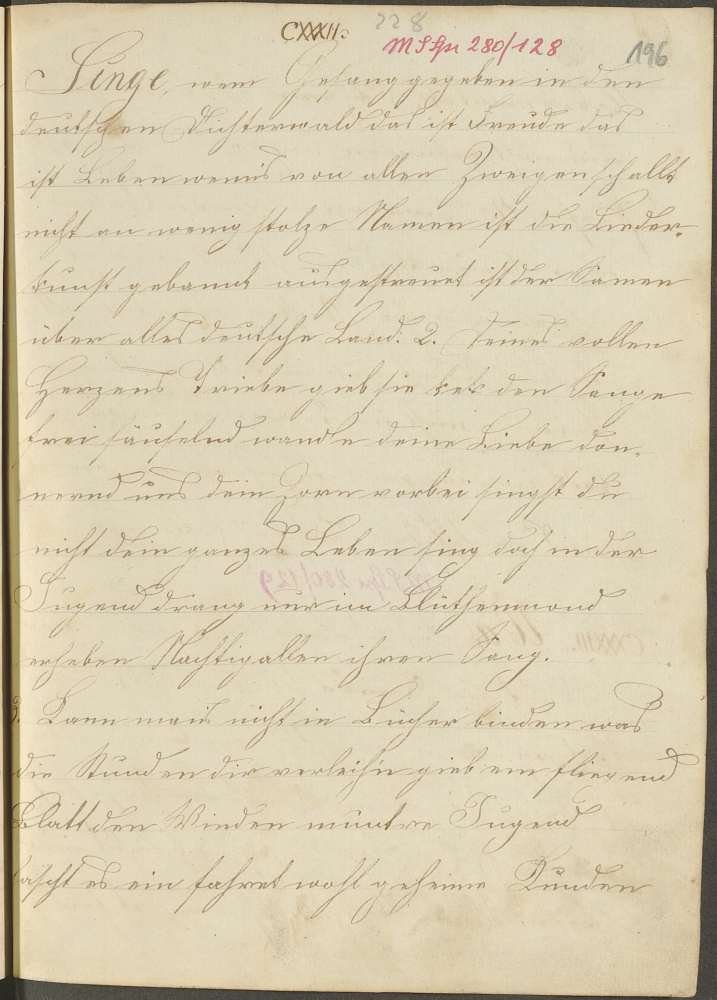 CXXXII.
228
MSGu 280/128
196
Singe, wem Gesang gegeben in den
deutschen Dichterwald das ist Freude das
ist Leben wenns von allen Zweigen schallt
nicht an wenig stolze Namen ist die Lieder-
kunst gebannt ausgestreuet ist der Samen
über alles deutsche Land. 2. Deines vollen
Herzens Triebe gieb sie kek den Sange
frei säuselnd wandle deine Liebe don-
nernd uns dein Zorn vorbei singst du
nicht dein ganzes Leben sing doch in der
Jugend drang nur im Blüthenmond
erheben Nachtigallen ihren Sang.
3. Kann mans nicht in Bücher binden was
die Stunden dir verleihn gieb ein fliegend
Blatt den Winden muntre Jugend
hascht es ein fahret wohl geheime Kunden